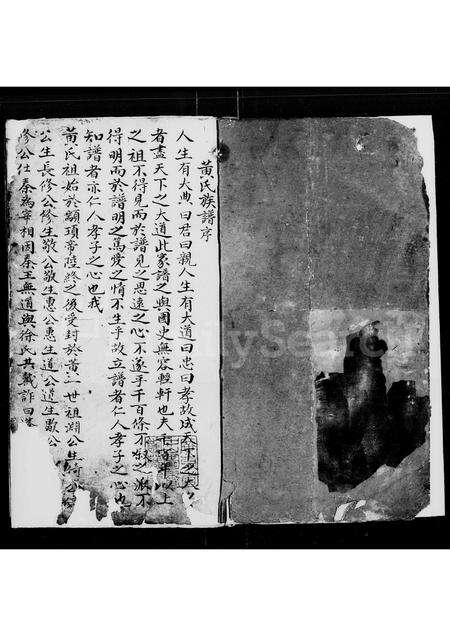 黃氏族譜序
人生有大典曰君曰親人生有大道曰忠曰孝故成天下之大
者盡天下之大道此家譜之與國史無容輕軒也夫千百年以上
之祖不得見而於譜見之思遠之心不遂乎千百條不叙之派不
得明而於譜明之篤愛之情不生乎故立譜者仁人孝子之心也
知譜者亦仁人孝子之心也我
黃氏祖始於顓頊帝陸終之後受封於黃一世祖淵公生琦公
公生長修公修生敬公敬生惠公惠生道公道生歇公
修公仕秦為宰相因秦王無道與徐氏共載詐曰
FamilySearch